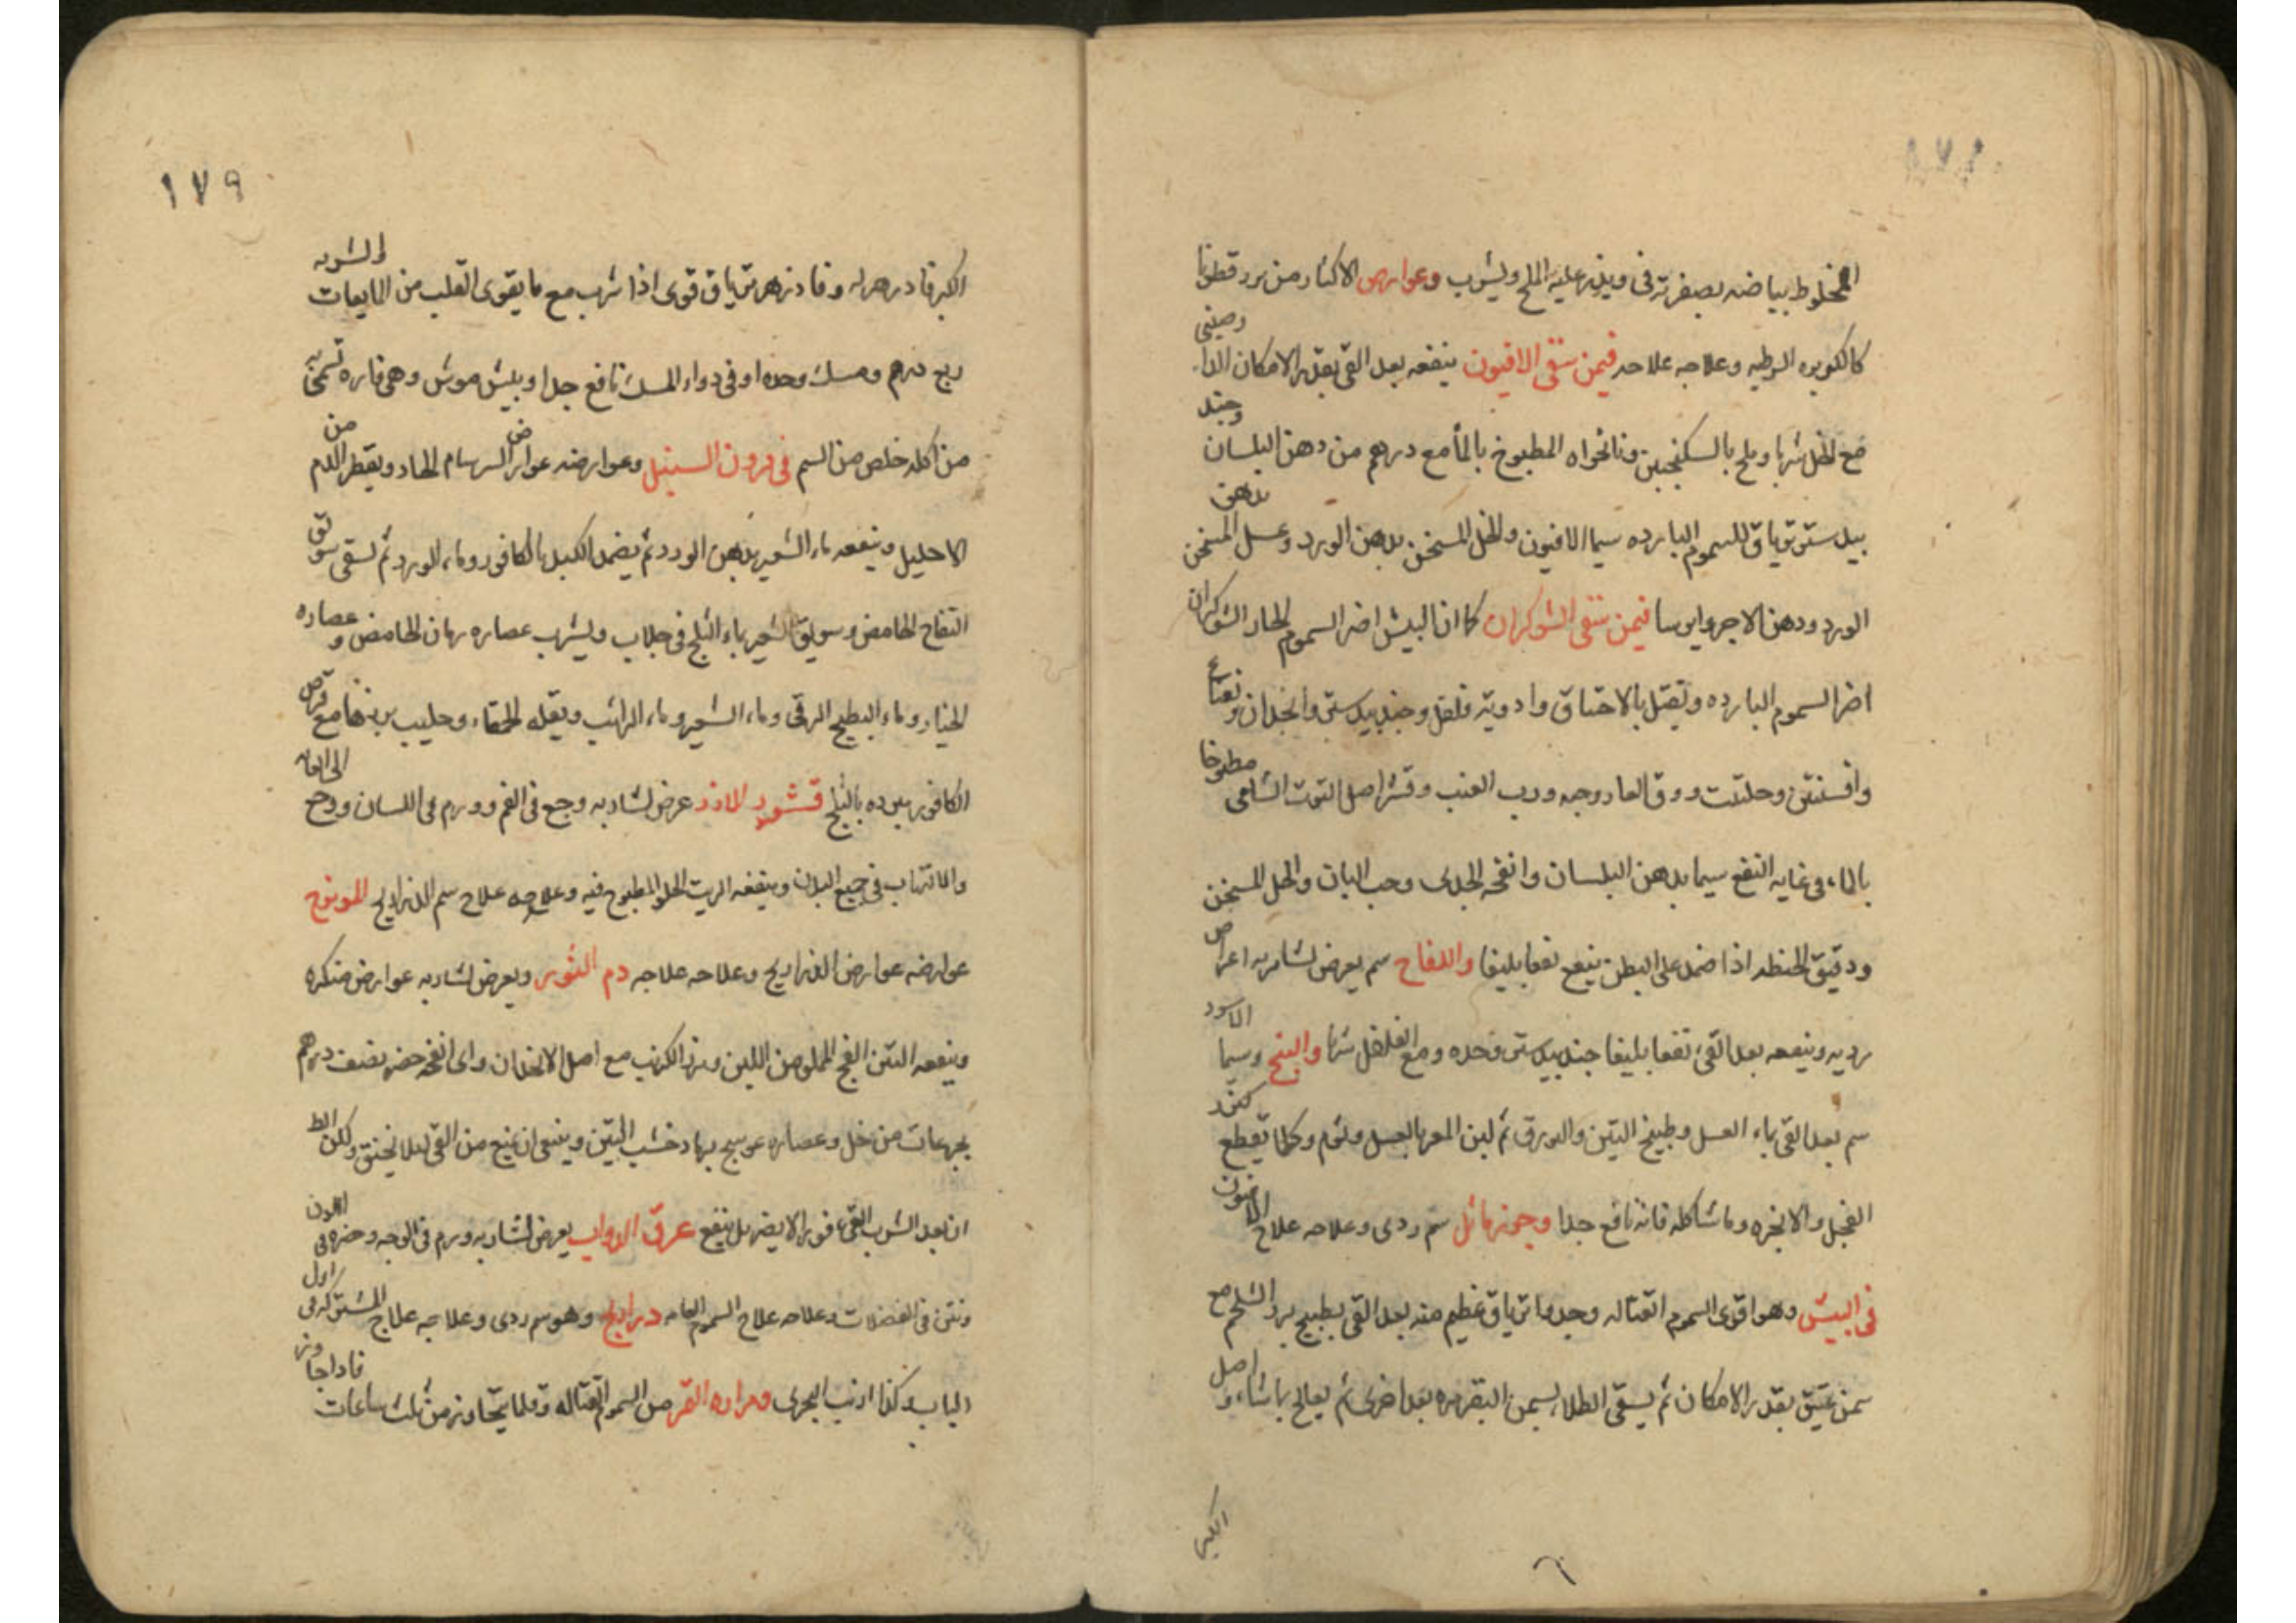 المخلوط بياضه بصفرته في ويذر عليه الملح ويشرب وعوارض الاكثار من بزر قطونا
كالكزبره الرطبه وعلاجه علاجه فيمن سقى الافيون ينفعه بعد القى بقدر الامكان الدارصينى
مع الخل شربا وملح بالسكنجبين ونانخواه المطبوخ بالماء مع درهم من دهن البلسان وجند
بيدستر ترياق للسموم البارده سيما الافيون والخل المسخن بدهن الورد وعسل المسخن بدهن
الورد ودهن الاجر وايرسا فيمن سقى الشوكران كما ان البيش اضر السموم الحاره الشوكران
اضر السموم البارده ويقتل بالاختناق وادويته فلفل وجندبيدستر وانجدان ونعناع
وافسنتين وحلتيت وورق الغار وحبه ورب العنب وقشر اصل التوت الشامى مطبوخا
بالماء فى غايه النفع سيما بدهن البلسان وانفحه الجدى وحب البان والخل المسخن
ودقيق الحنطه اذا ضمد على البطن ينفع نفعا بليغا واللفاح سم يعرض لشاربه اعراض
رديه وينفعه بعد القى نفعا بليغا جندبيدستر وحده ومع الفلفل شربا والبنج وسيما الاسود
سم بعد القى بماء العسل وطبيخ التين والبورق ثم لبن المعز بالعسل وثوم وكلما يقطع
الفجل والانجره وما شاكله فانه نافع جدا وجوز ماثل سم ردى وعلاجه علاج الافيون
فى البيش وهو اقوى السموم القتاله وجدوار ترياق عظيم منه بعد القى بطبيخ بزر الشلجم مع
سمن عتيق بقدر الامكان ثم يسقى الطلاء بسمن البقر مره بعد اخرى ثم يعالج بما شاء واصل
الكبر
١٧٩
الكبر فادزهر له وفادزهر ترياق قوى اذا شرب مع ما يقوى القلب من المايعات والشربه
ربع درهم ومسك وحده او فى دواء المسك نافع جدا وبيش موش وهى فاره تسمى به
من اكله خلص من السم فى قرون السنبل وعوارضه عوارض السرسام الحاد ويقطر الدم من
الاحليل وينفعه ماء الشعير بدهن الورد ثم يضمد الكبد بالكافور وماء الورد ثم يسقى سويق
التفاح الحامض وسويق الشعير بماء الثلج فى جلاب ويشرب عصاره رمان الحامض وعصاره
الخيار وماء البطيخ الرقى وماء الشعير وماء الرائب وبقله الحمقاء وحليب بزرها مع قرص
الكافور مبرده بالثلج قشور الارز عرض لشاربه وجع فى الفم وورم فى اللسان ووجع
والالتهاب فى جميع البدن وينفعه الزيت الحلو المطبوخ فيه وعلاجه علاج سم الذراريح
عوارضه عوارض الذراريح وعلاجه علاجه دم الثور ويعرض لشاربه عوارض منكره
وينفعه التين الفج المملو من اللبن وبزر الكرنب مع اصل الانجدان واى انفحه حضر بنصف درهم
بجرعات من خل وعصاره عوسج برماد خشب التين وينبغى ان يمنع من القى لئلا يختنق ولكن
ان بعد الشرب القى فورا لا يضر بل ينفع عرق الدواب يعرض لشاربه ورم فى الوجه وخضره فى اللون
ونتن فى الفضلات وعلاجه علاج السموم العامه وهو سم ردى وعلاجه علاج
الباب وكذا ارنب البحرى ومراره النمر من السموم القتاله وقلما يتجاوز من ثلث ساعات